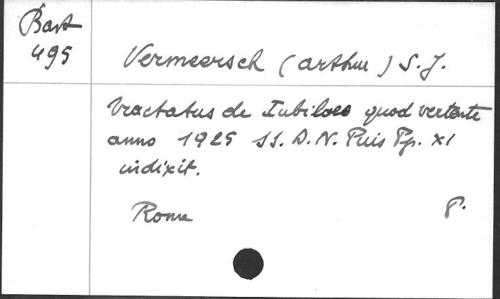 Bart
495
Vermeersch (arthur) S.J.
Tractatus de Iubilaeo quod vertente
anno 1925 SS. D.N. Pius Pp. XI
indixit.
Roma
8°.